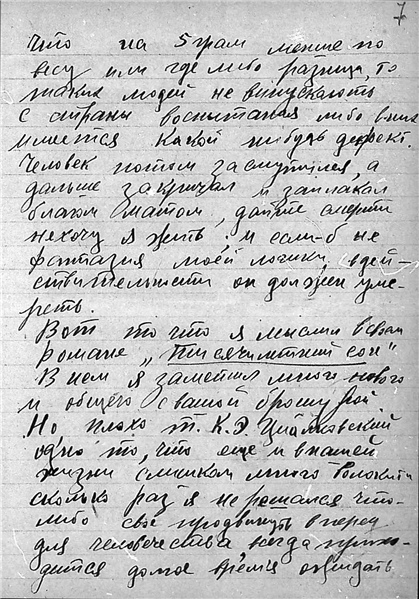 7
что на 5 грам менше по
весу или где либо разница, то
таких людей не выпускают
с страны воспитания либо в них
имеется какой нибудь дефект.
Человек потом засмутился, а
дальше закричал и заплакал
благим матом, дайте смерти
нехочу я жить, и если-б не
фантазия моей логики, вдей-
ствительности он должен уме-
реть.
Вот то что я мыслил в своем
романе „Тисячилетний сон"
В нем я заметил много нового
и общего с вашой брошурой
Но плохо т. К.Э. Циолковский
одно то, что еще и в нашей
жизни слишком много волокити
сколько раз я не решался что-
либо свое продвинуть вперед
для человечества, всегда прихо-
дится долгое время ожидать